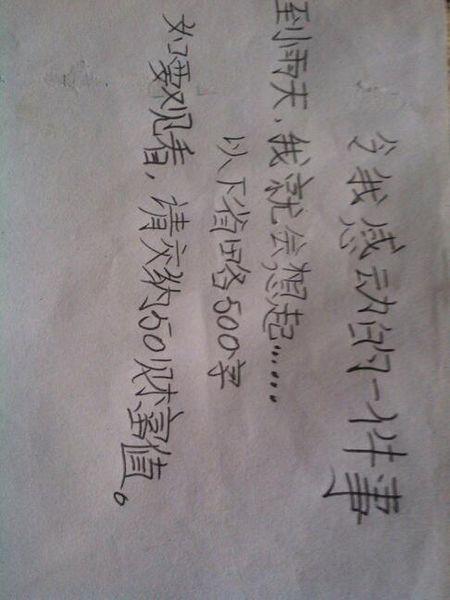 令我感动的一件事
到雨天,我就会想起……
以下省略500字
如要观看,请交纳50财富值。